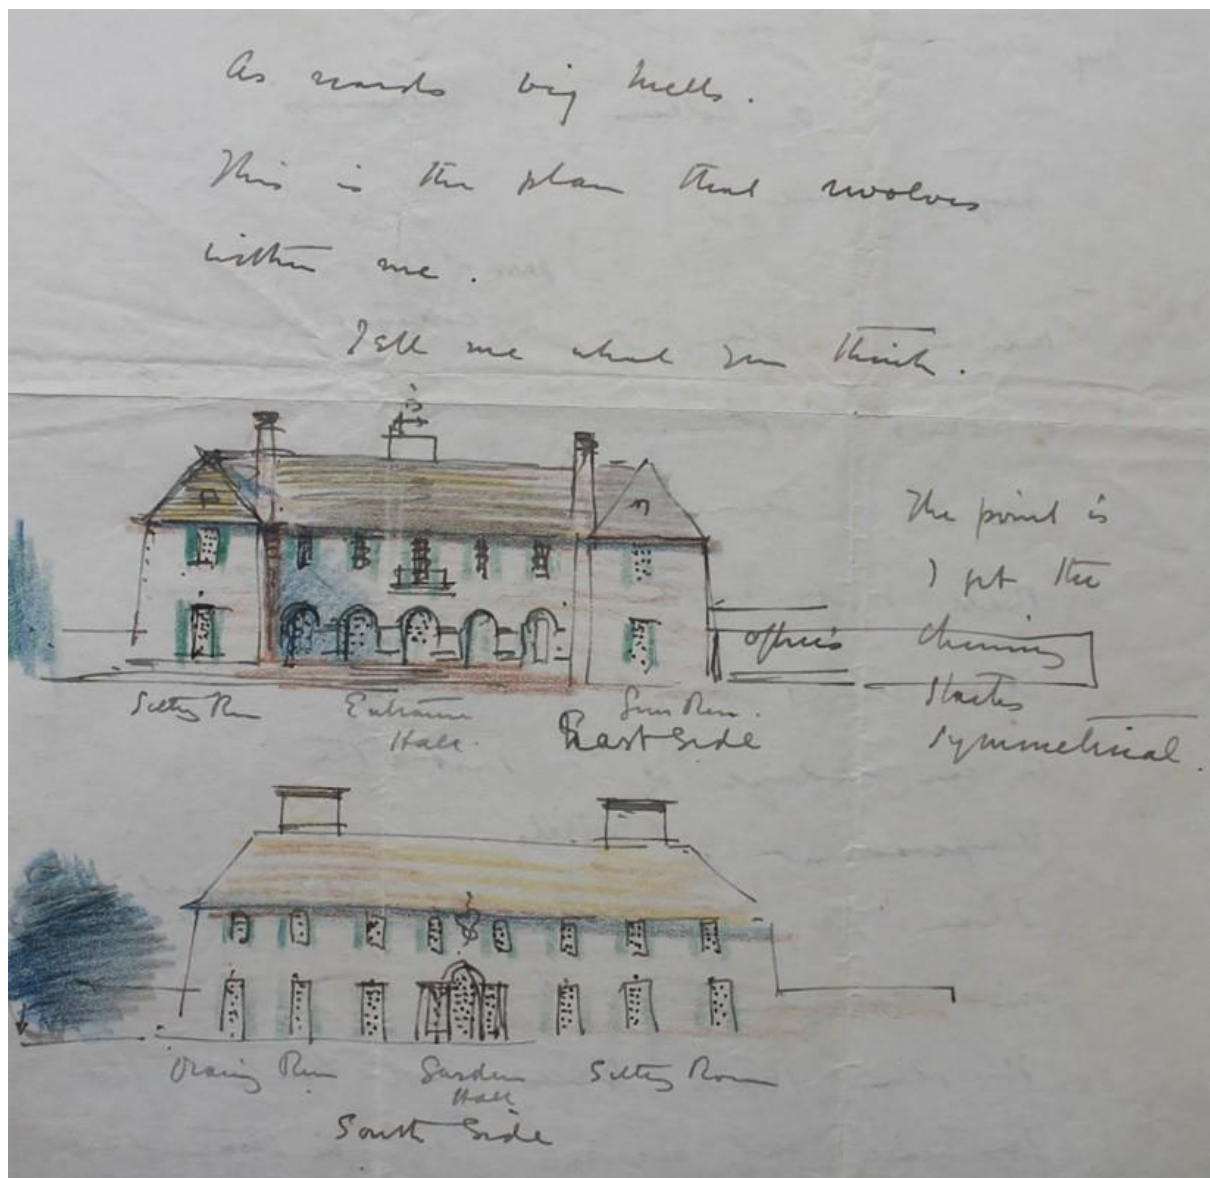 As regards big Mells.
This is the plan that revolves
within me.
Tell me what you think.
The point is
I get the
chimney
stacks
symmetrical.
offices
Sitting Rm Entrance Hall. Sun Rm.
East Side
Draing Rm Garden Hall Sitting Room
South Side